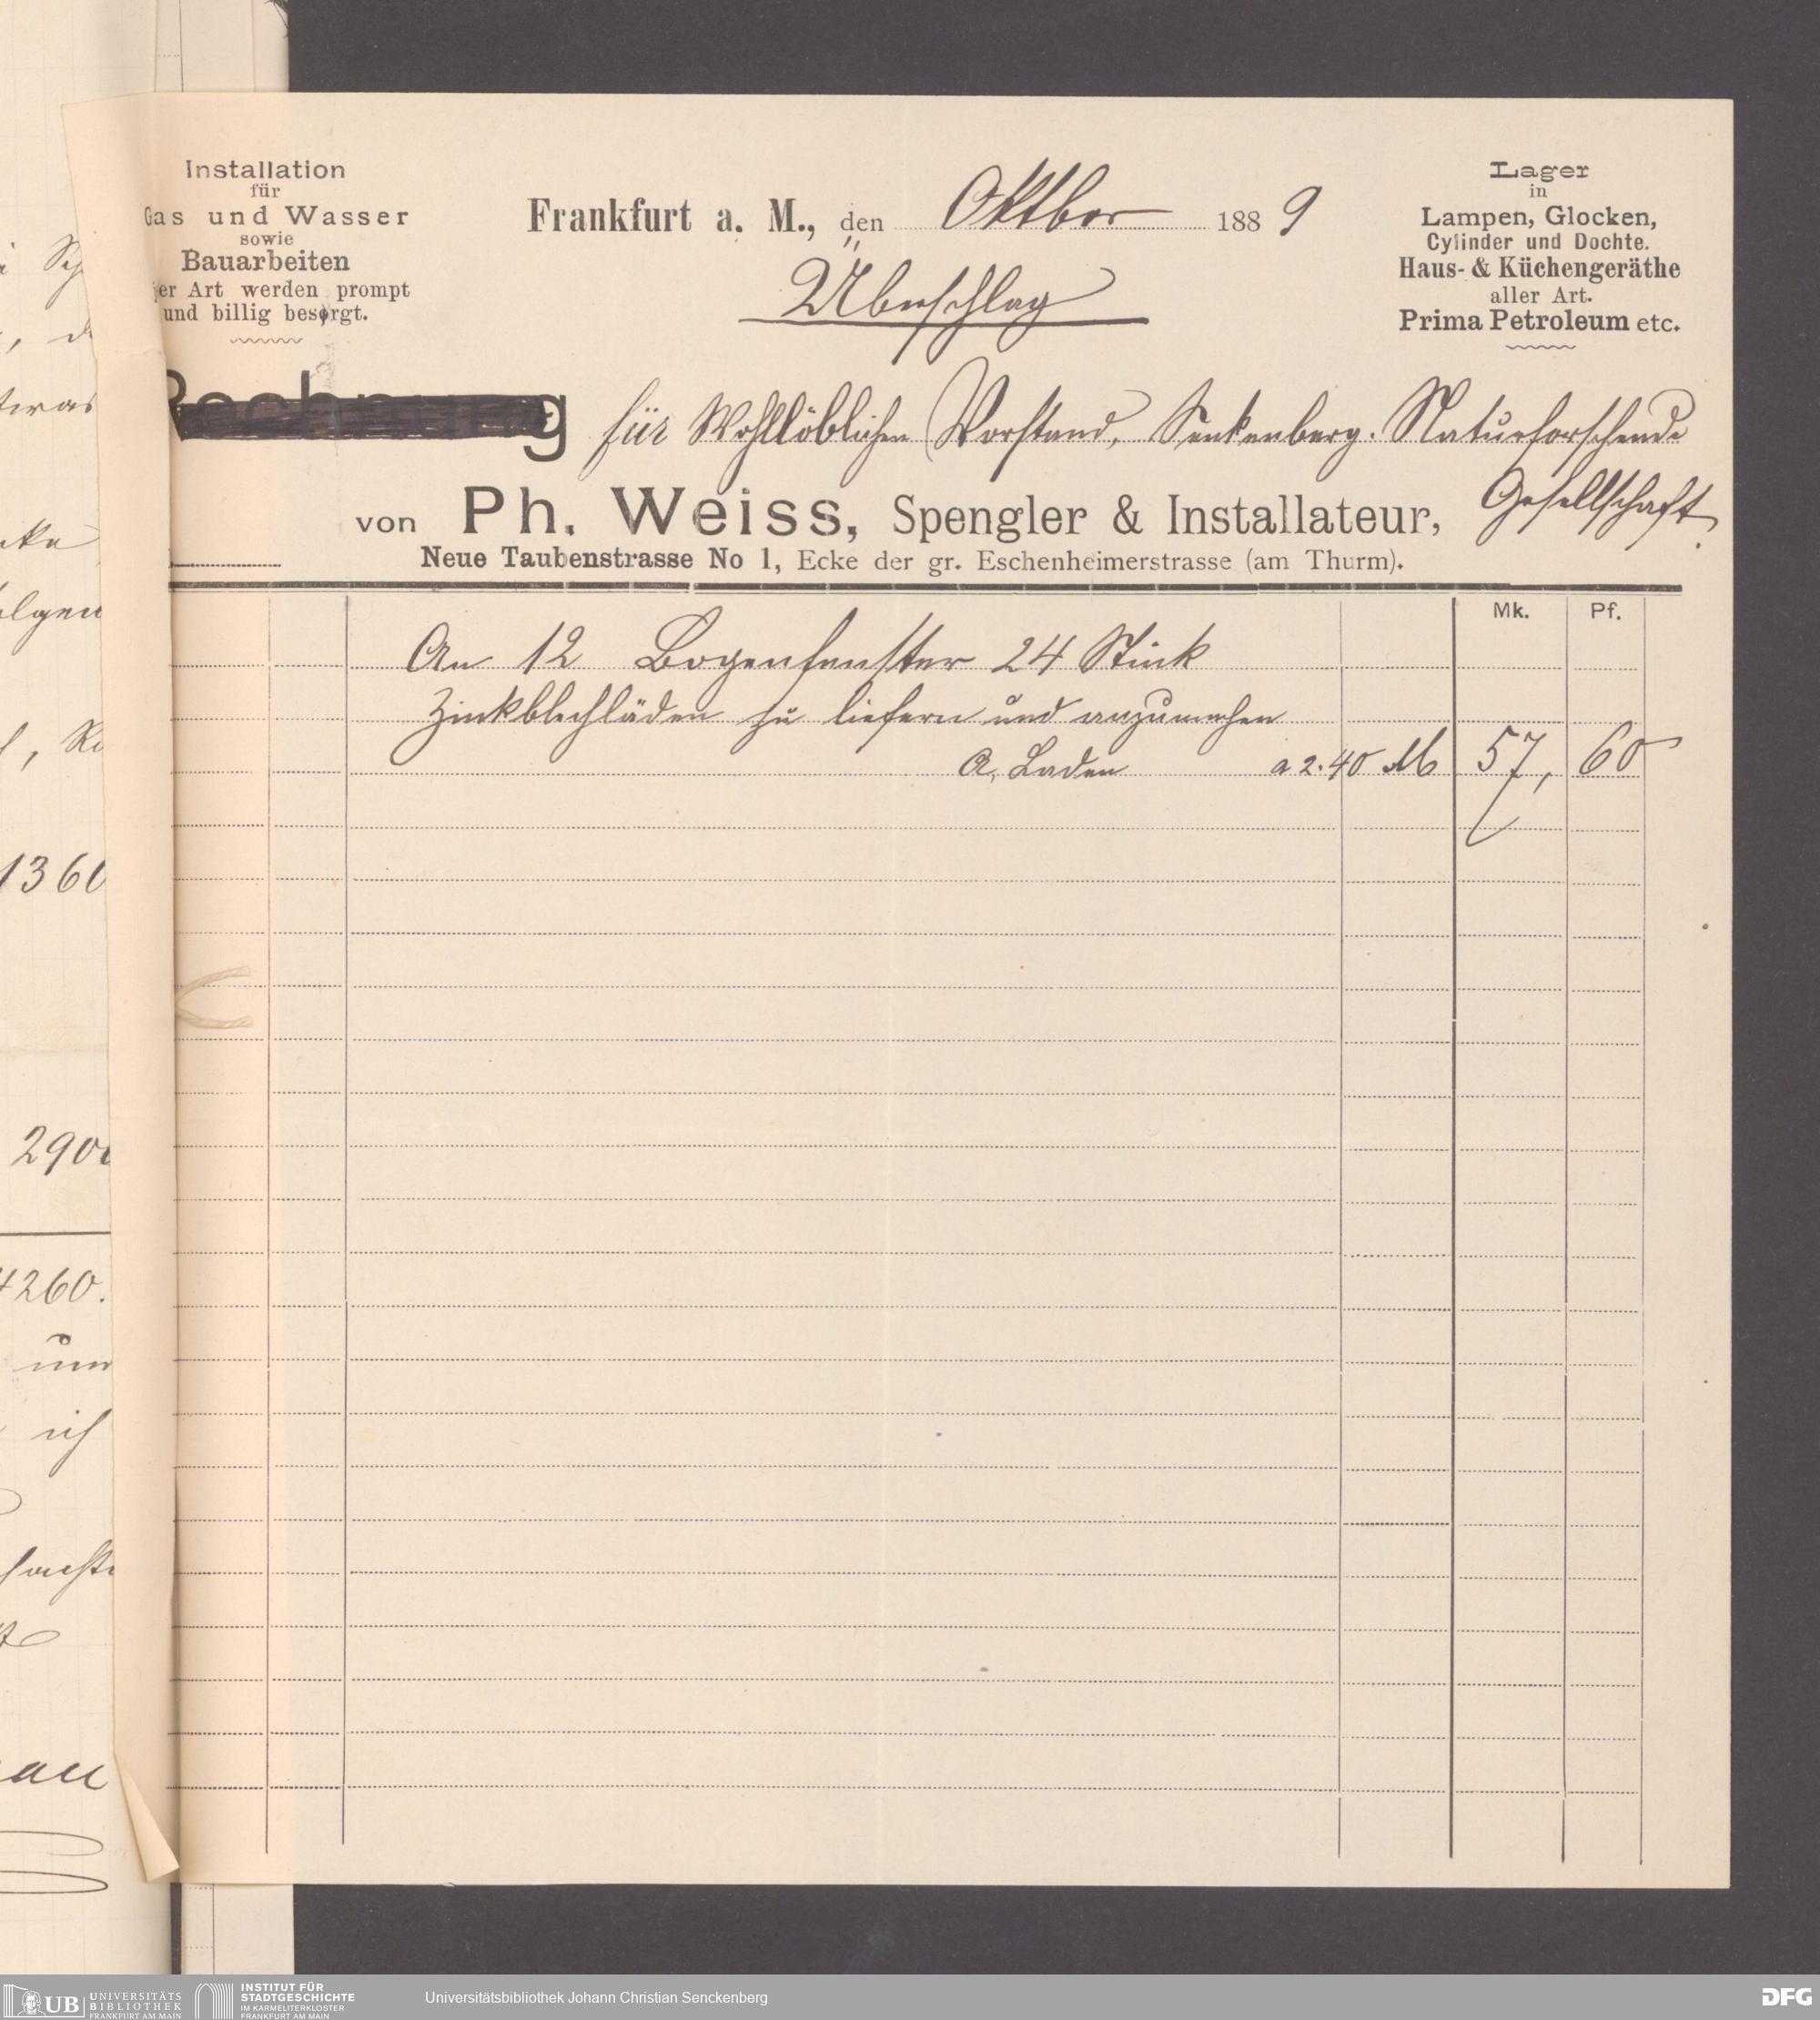 Installation
für
Gas und Wasser
sowie
Bauarbeiten
er Art werden prompt
und billig besorgt.
Frankfurt a. M., den Oktbor 1889
Überschlag
Lager
in
Lampen, Glocken,
Cylinder und Dochte.
Haus- & Küchengeräthe
aller Art.
Prima Petroleum etc.
Rechnung für Wohllöblichen Vorstand, Senkenberg. Naturforschende
Gesellschaft
von Ph. Weiss, Spengler & Installateur,
Neue Taubenstrasse No 1, Ecke der gr. Eschenheimerstrasse (am Thurm).
Mk. Pf.
An 12 Bogenfenster 24 Stück
Zinkblechläden zu liefern und anzumachen
a, Laden a 2.40 M 57, 60
1360
2900
4260.
um
ich
UB UNIVERSITÄTS
BIBLIOTHEK
FRANKFURT AM MAIN
INSTITUT FÜR
STADTGESCHICHTE
IM KARMELITERKLOSTER
FRANKFURT AM MAIN
Universitätsbibliothek Johann Christian Senckenberg
DFG